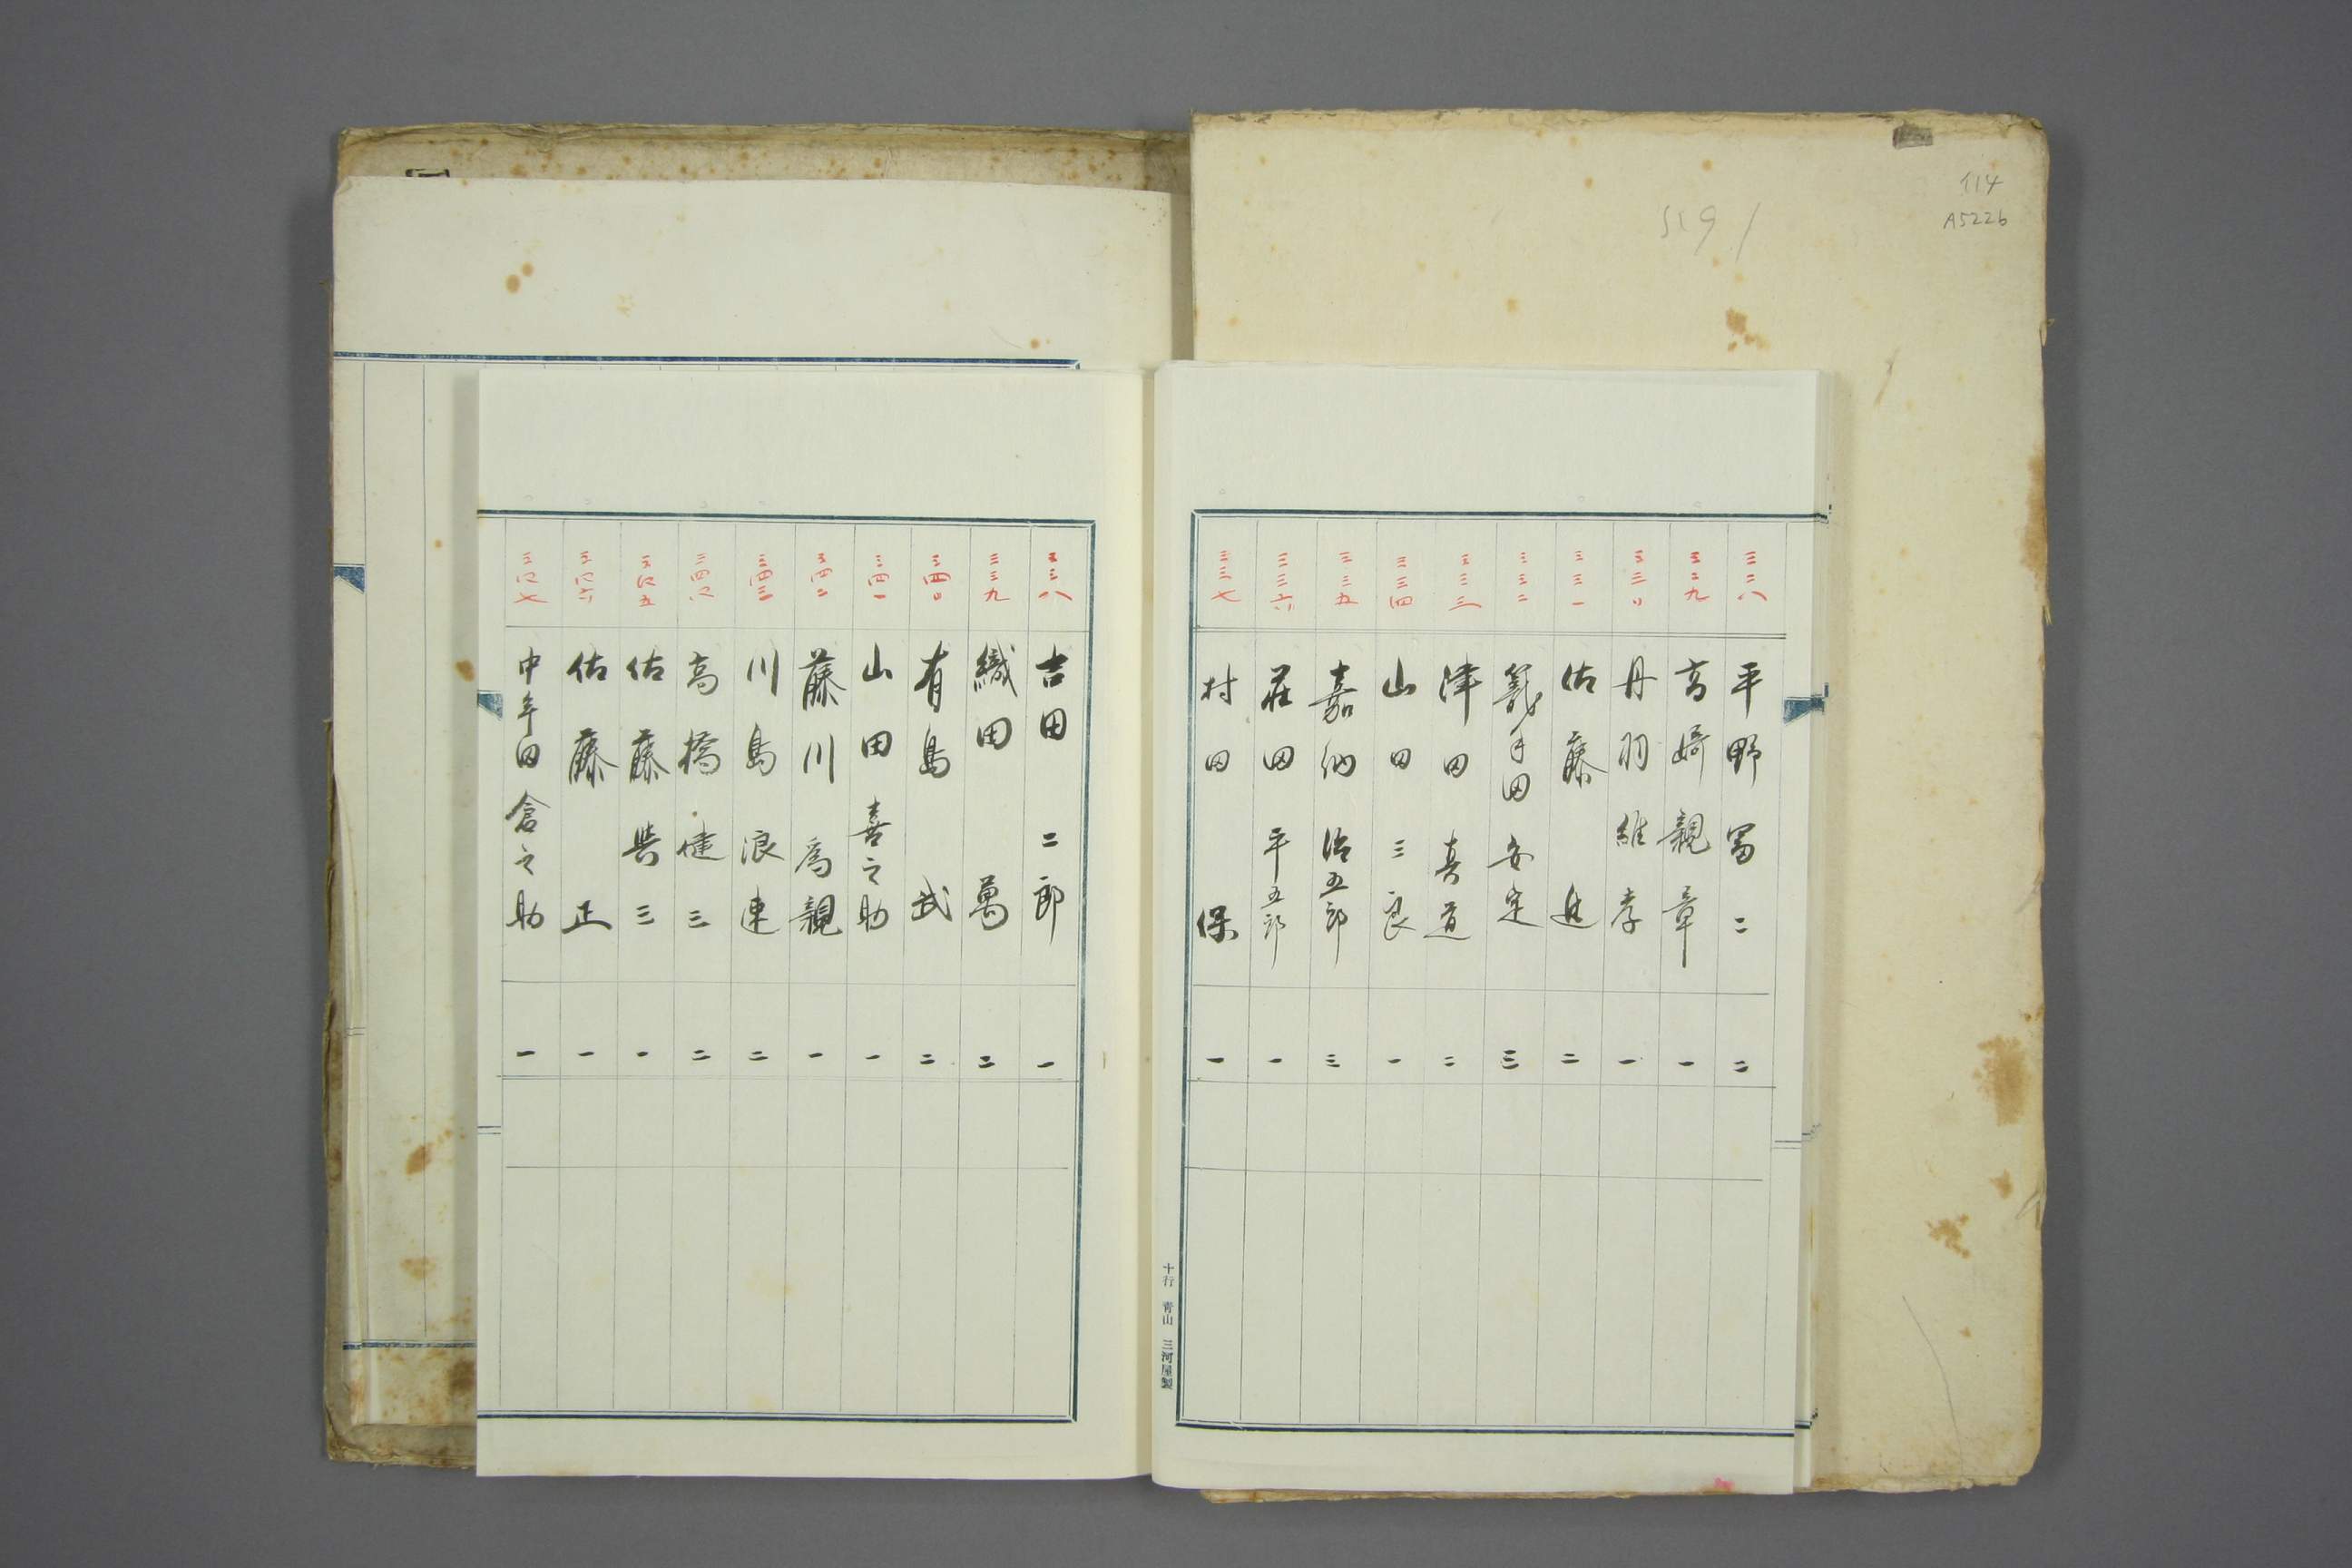 114
A5226
三二八 平野冨二 二
三二九 高崎親章 一
三三〇 丹羽維孝 一
三三一 佐藤進 二
三三二 籠手田安定 三
三三三 津田真道 二
三三四 山田三良 一
三三五 嘉納治五郎 三
三三六 荘田平五郎 一
三三七 村田保 一
十行 青山 三河屋製
三三八 吉田二郎 一
三三九 織田萬 二
三四〇 有島武 二
三四一 山田喜之助 一
三四二 藤川為親 一
三四三 川島浪速 二
三四四 高橋健三 二
三四五 佐藤與三 一
三四六 佐藤正 一
三四七 中牟田倉之助 一